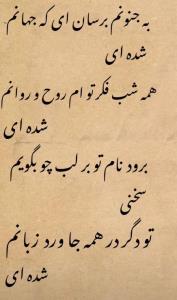 به جنونم برسان ای که جهانم
شده ای
همه شب فکر تو ام روح و روانم
شده ای
برود نام تو بر لب چو بگویم
سخنی
تو دگر در همه جا ورد زبانم
شده ای